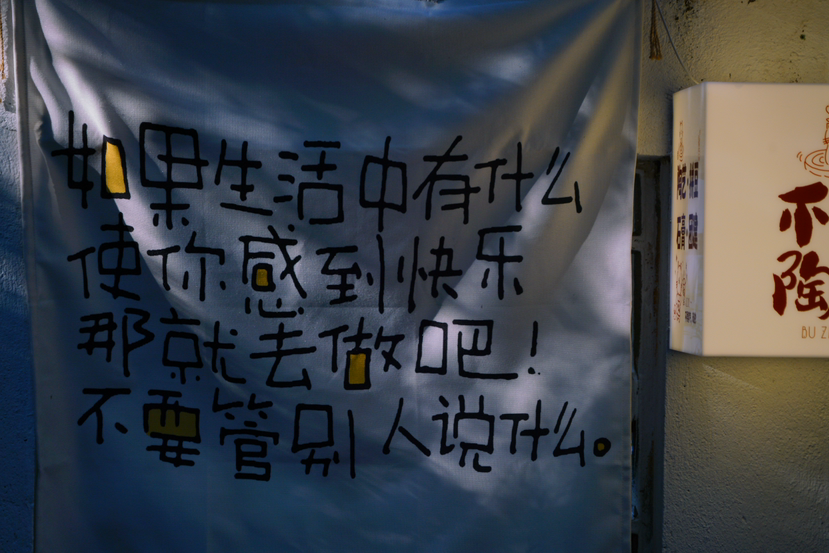 如果生活中有什么
使你感到快乐
那就去做吧!
不要管别人说什么。
不
陶
BU Z